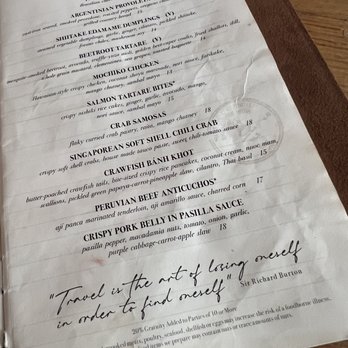 ARGENTINIAN PROVOLETA
SHIITAKE EDAMAME DUMPLINGS (V)
steamed vegetable dumplings, garlic, ginger, shallots, pickled shiitake,
BEETROOT TARTARE (V)
MOCHIKO CHICKEN
Hawaiian-style crispy chicken, coconut shoyu mayonnaise, nori sauce, furikake,
mango chutney, sambal mayo 15
SALMON TARTARE BITES*
crispy nishiki rice cakes, ginger, garlic, avocado, mango,
nori sauce, sambal mayo 15
CRAB SAMOSAS
flaky curried crab pastry, raita, mango chutney 18
SINGAPOREAN SOFT SHELL CHILI CRAB
crispy soft shell crabs, house made tosco pasta, sweet chili-tomato sauce 18
CRAWFISH BÁNH KHOT
butter-poached crawfish tails, bite-sized crispy rice pancakes, coconut cream, nuoc mam,
scallions, pickled green papaya-carrot-pineapple slaw, cilantro, Thai basil 15
PERUVIAN BEEF ANTICUCHOS*
aji panca marinated tenderloin, aji amarillo sauce, charred corn 17
CRISPY PORK BELLY IN PASILLA SAUCE
pasilla pepper, macadamia nuts, tomato, onion, garlic,
purple cabbage-carrot-apple slaw 18
"Travel is the art of losing oneself
in order to find oneself"
Sir Richard Burton
20% Gratuity Added to Parties of 10 or More
cooked meats, poultry, seafood, shellfish or eggs may increase the risk of a foodborne illness.
food items we prepare may contain nuts or trace amounts of nuts.